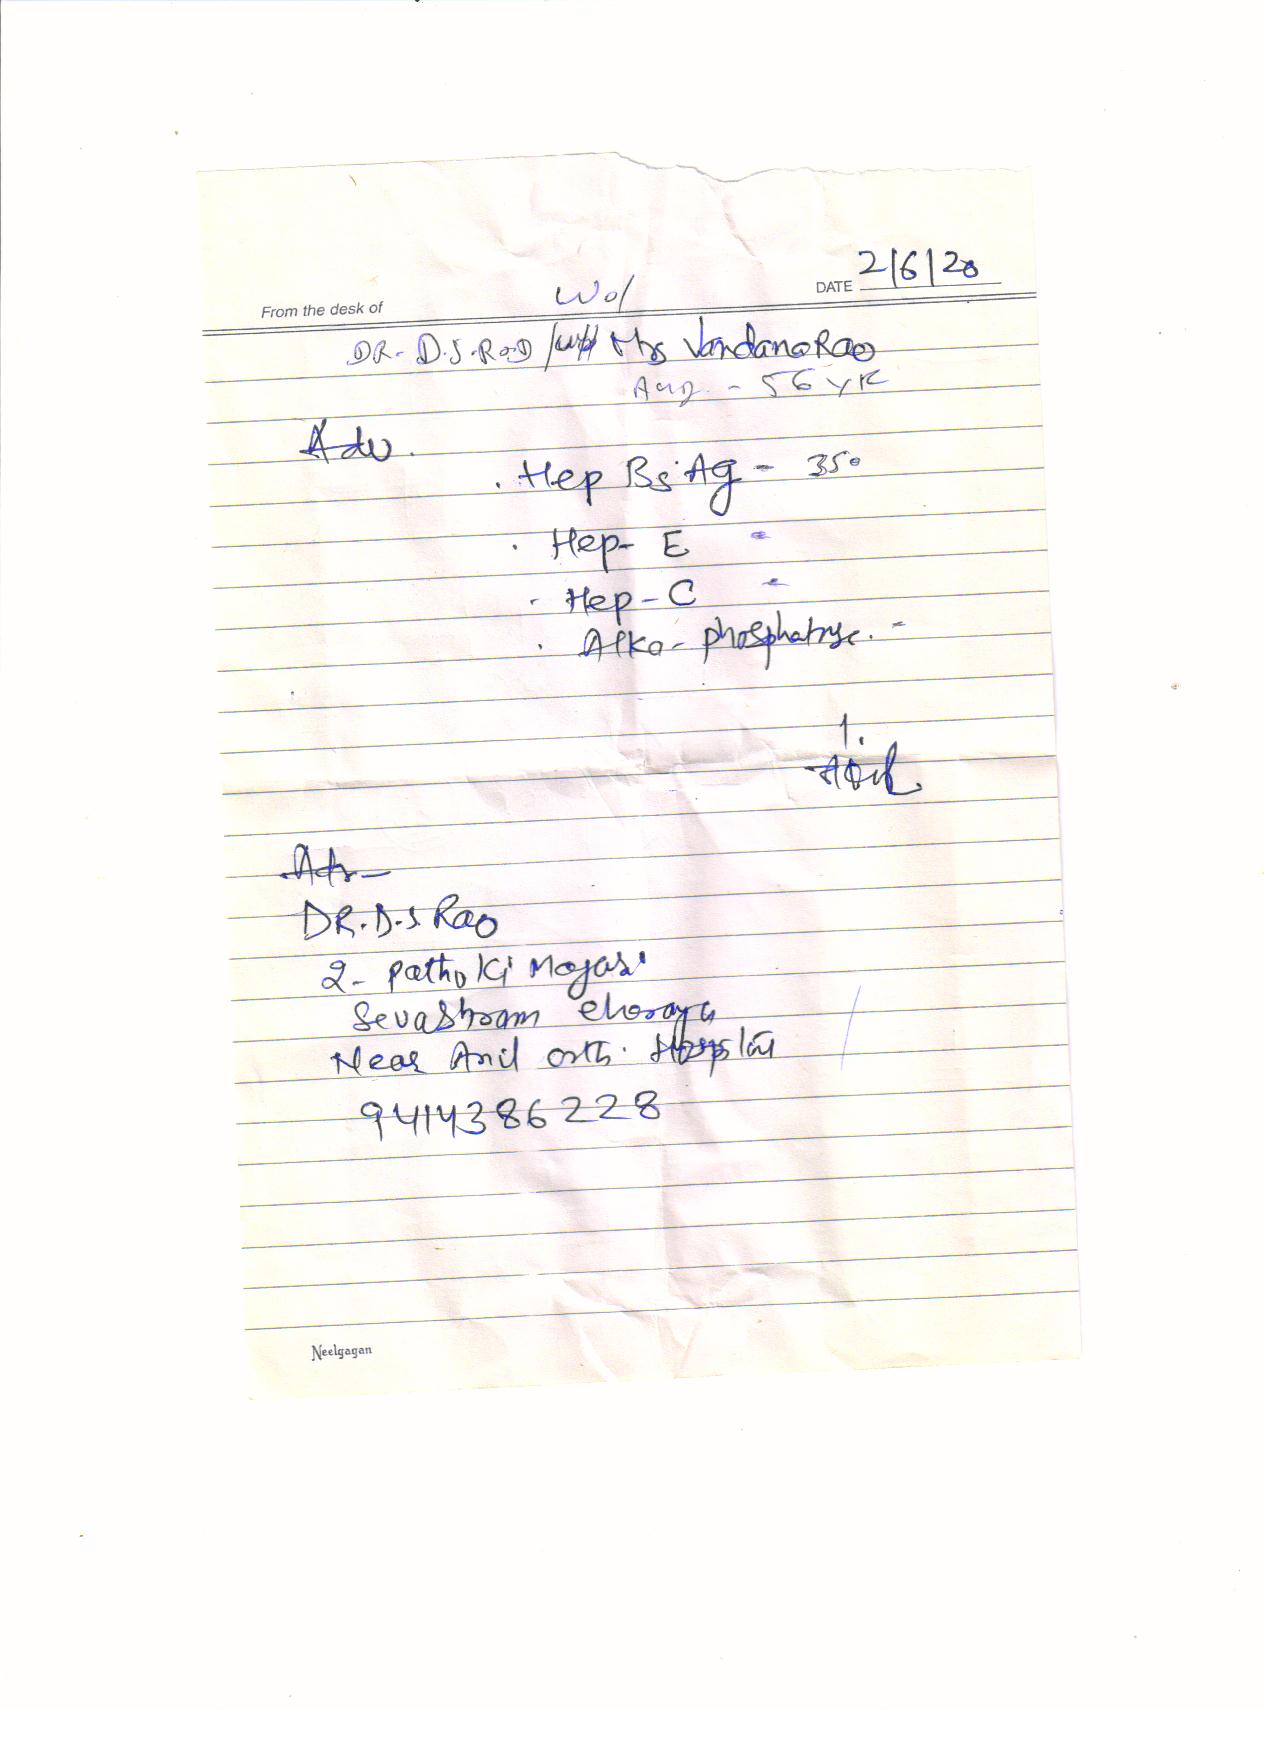 DATE 2/6/20
From the desk of W o/
DR. D.S. Rao / Mrs Vandana Rao
- 56 yr
Adv.
. Hep Bs Ag - 350
. Hep- E -
. Hep - C -
. Alka - phosphatyse. -
1.
Adr -
DR. D.S. Rao
2- Patho Ki Magari
Sevashram choraya
Near Anil orth. Hospital
9414386228
Neelgagan